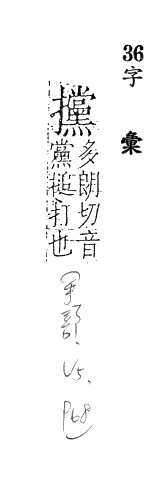 36
字彙
攩
多朗切音
黨搥打也
手部.
V5.
P68